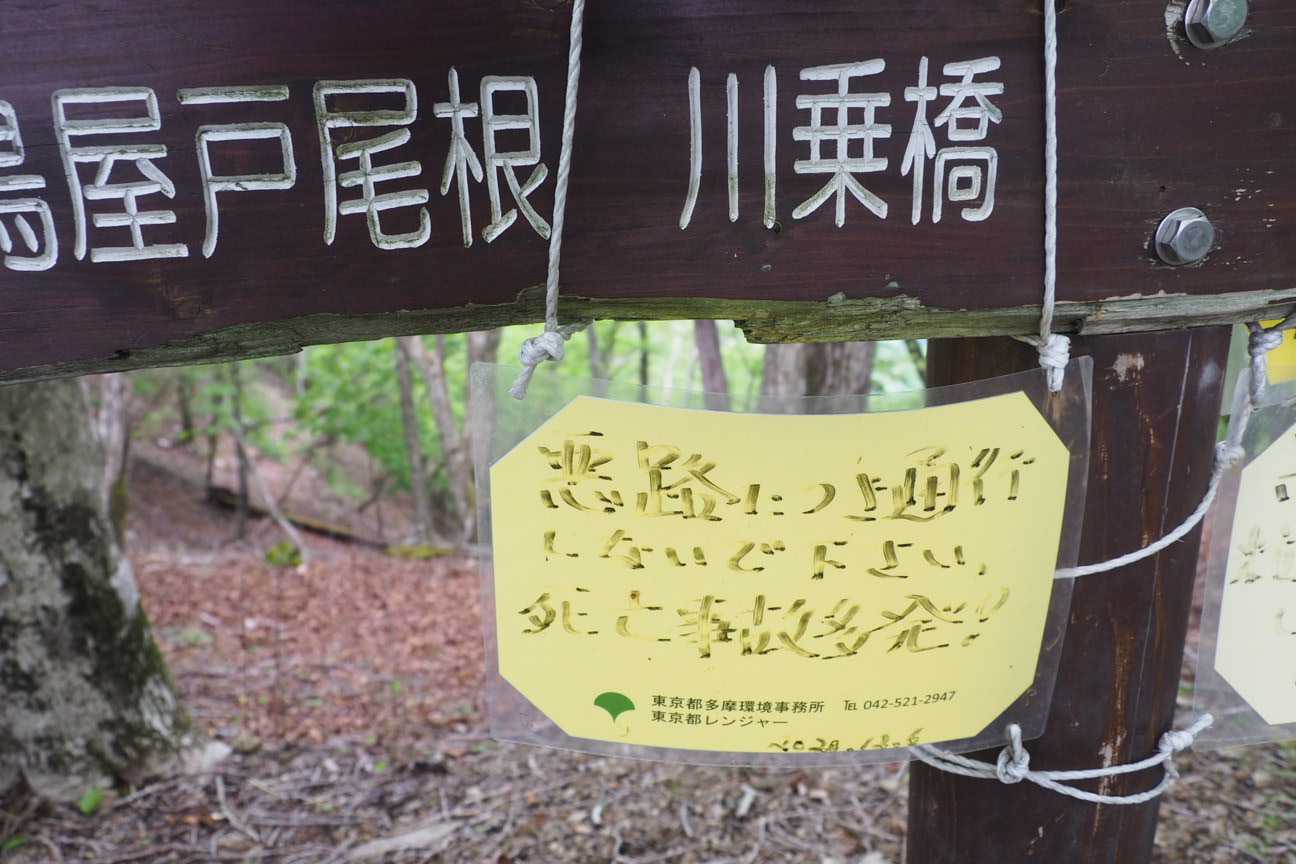 鳥屋戸尾根 川乗橋
悪路につき通行
しないで下さい。
死亡事故多発!!
東京都多摩環境事務所 TEL 042-521-2947
東京都レンジャー